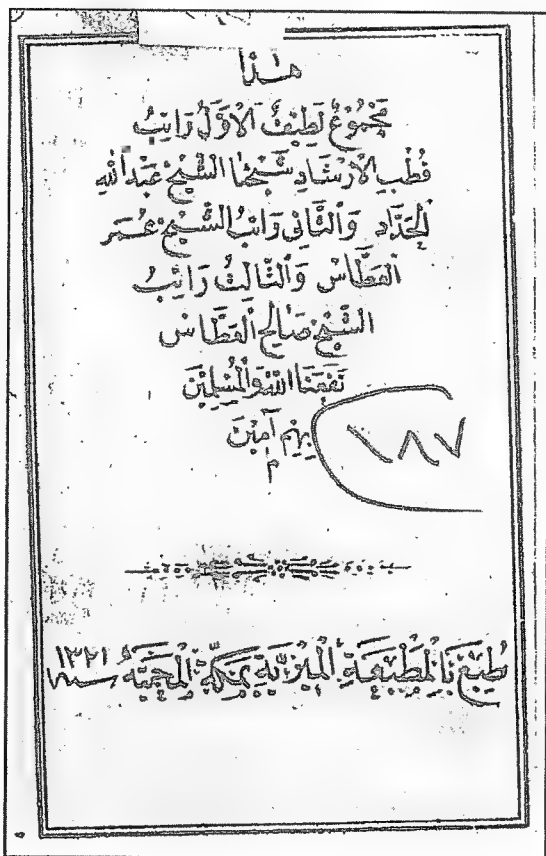 هٰذا
مَجْمُوْعٌ لَطِيْفٌ اَلْاَوَّلُ رَاتِبُ
قُطْبِ الْاِرْشَادِ شَيْخُنَا الشَّيْخُ عَبْدُ اللهِ
الْحَدَّادِ وَالثَّانِي رَاتِبُ الشَّيْخِ عُمَرَ
الْعَطَّاسْ وَالثَّالِثُ رَاتِبُ
الشَّيْخِ صَالِحِ الْعَطَّاسْ
نَفَعَنَا اللهُ وَالْمُسْلِمِيْنَ
بِهِمْ آمِيْنَ
م
١٨٧
طُبِعَ بِالْمَطْبَعَةِ الْمِيْرِيَّةِ بِمَكَّةَ الْمَحْمِيَّةْ سنة ١٣٢١